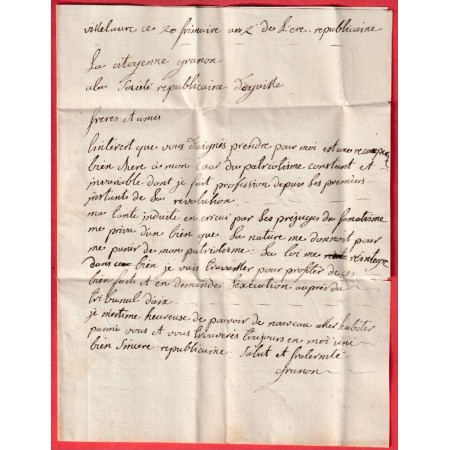 villelaure ce 20 frimaire an 2e de l'ere republicaine
La citoyenne granon
a la Société republicaine d'eguille
freres et amis
l'intérêt que vous daignés prendre pour moi est une recompense
bien chere a mon cœur du patriotisme constant et
invariable dont je fait profession depuis les premiers
instants de la revolution.
ma tante induite en erreur par les prejugés du fanatisme
me priva d'un bien que la nature me donnoit pour
me punir de mon patriotisme. la loi me réintegre
dans ce bien je vais travailler pour profiter de ces
bienfaits et en demander l'exécution auprès du
tribunal d'aix
je m'estime heureuse de pouvoir de nouveau aller habiter
parmi vous et vous trouverés toujours en moi une
bien sincere republicaine. Salut et fraternité
granon